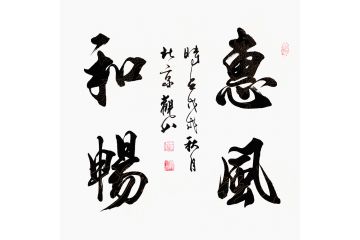 惠風
和暢
時在戊戌秋月
北京觀